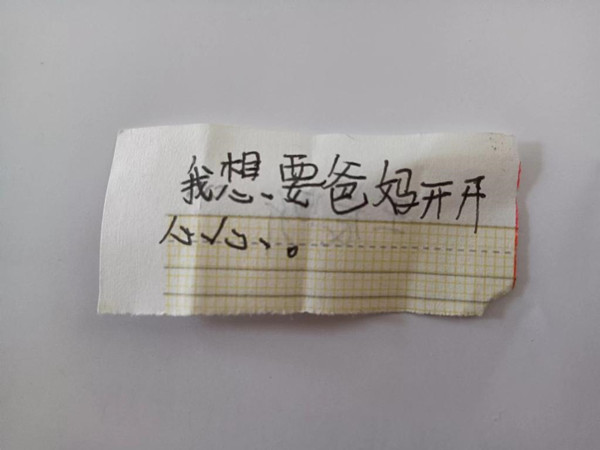 我想要爸妈开开
心心。